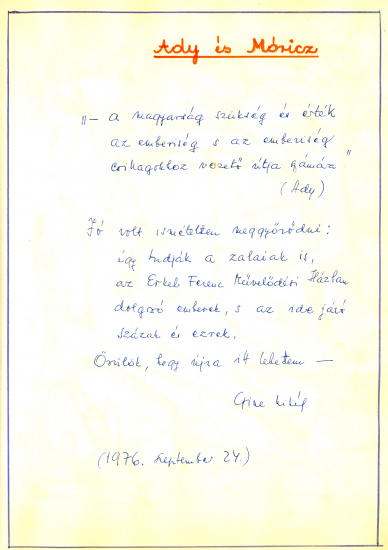 Ady és Móricz
„— a magyarság szükség és érték
az emberiség s az emberiség
csillagokhoz vezető útja számára"
(Ady)
Jó volt ismételten meggyőződni:
úgy tudják a zalaiak is,
az Erkel Ferenc Művelődési Házban
dolgozó emberek, s az ide járó
százak és ezrek.
Örülök, hogy újra itt lehettem —
(1976. szeptember 24.)